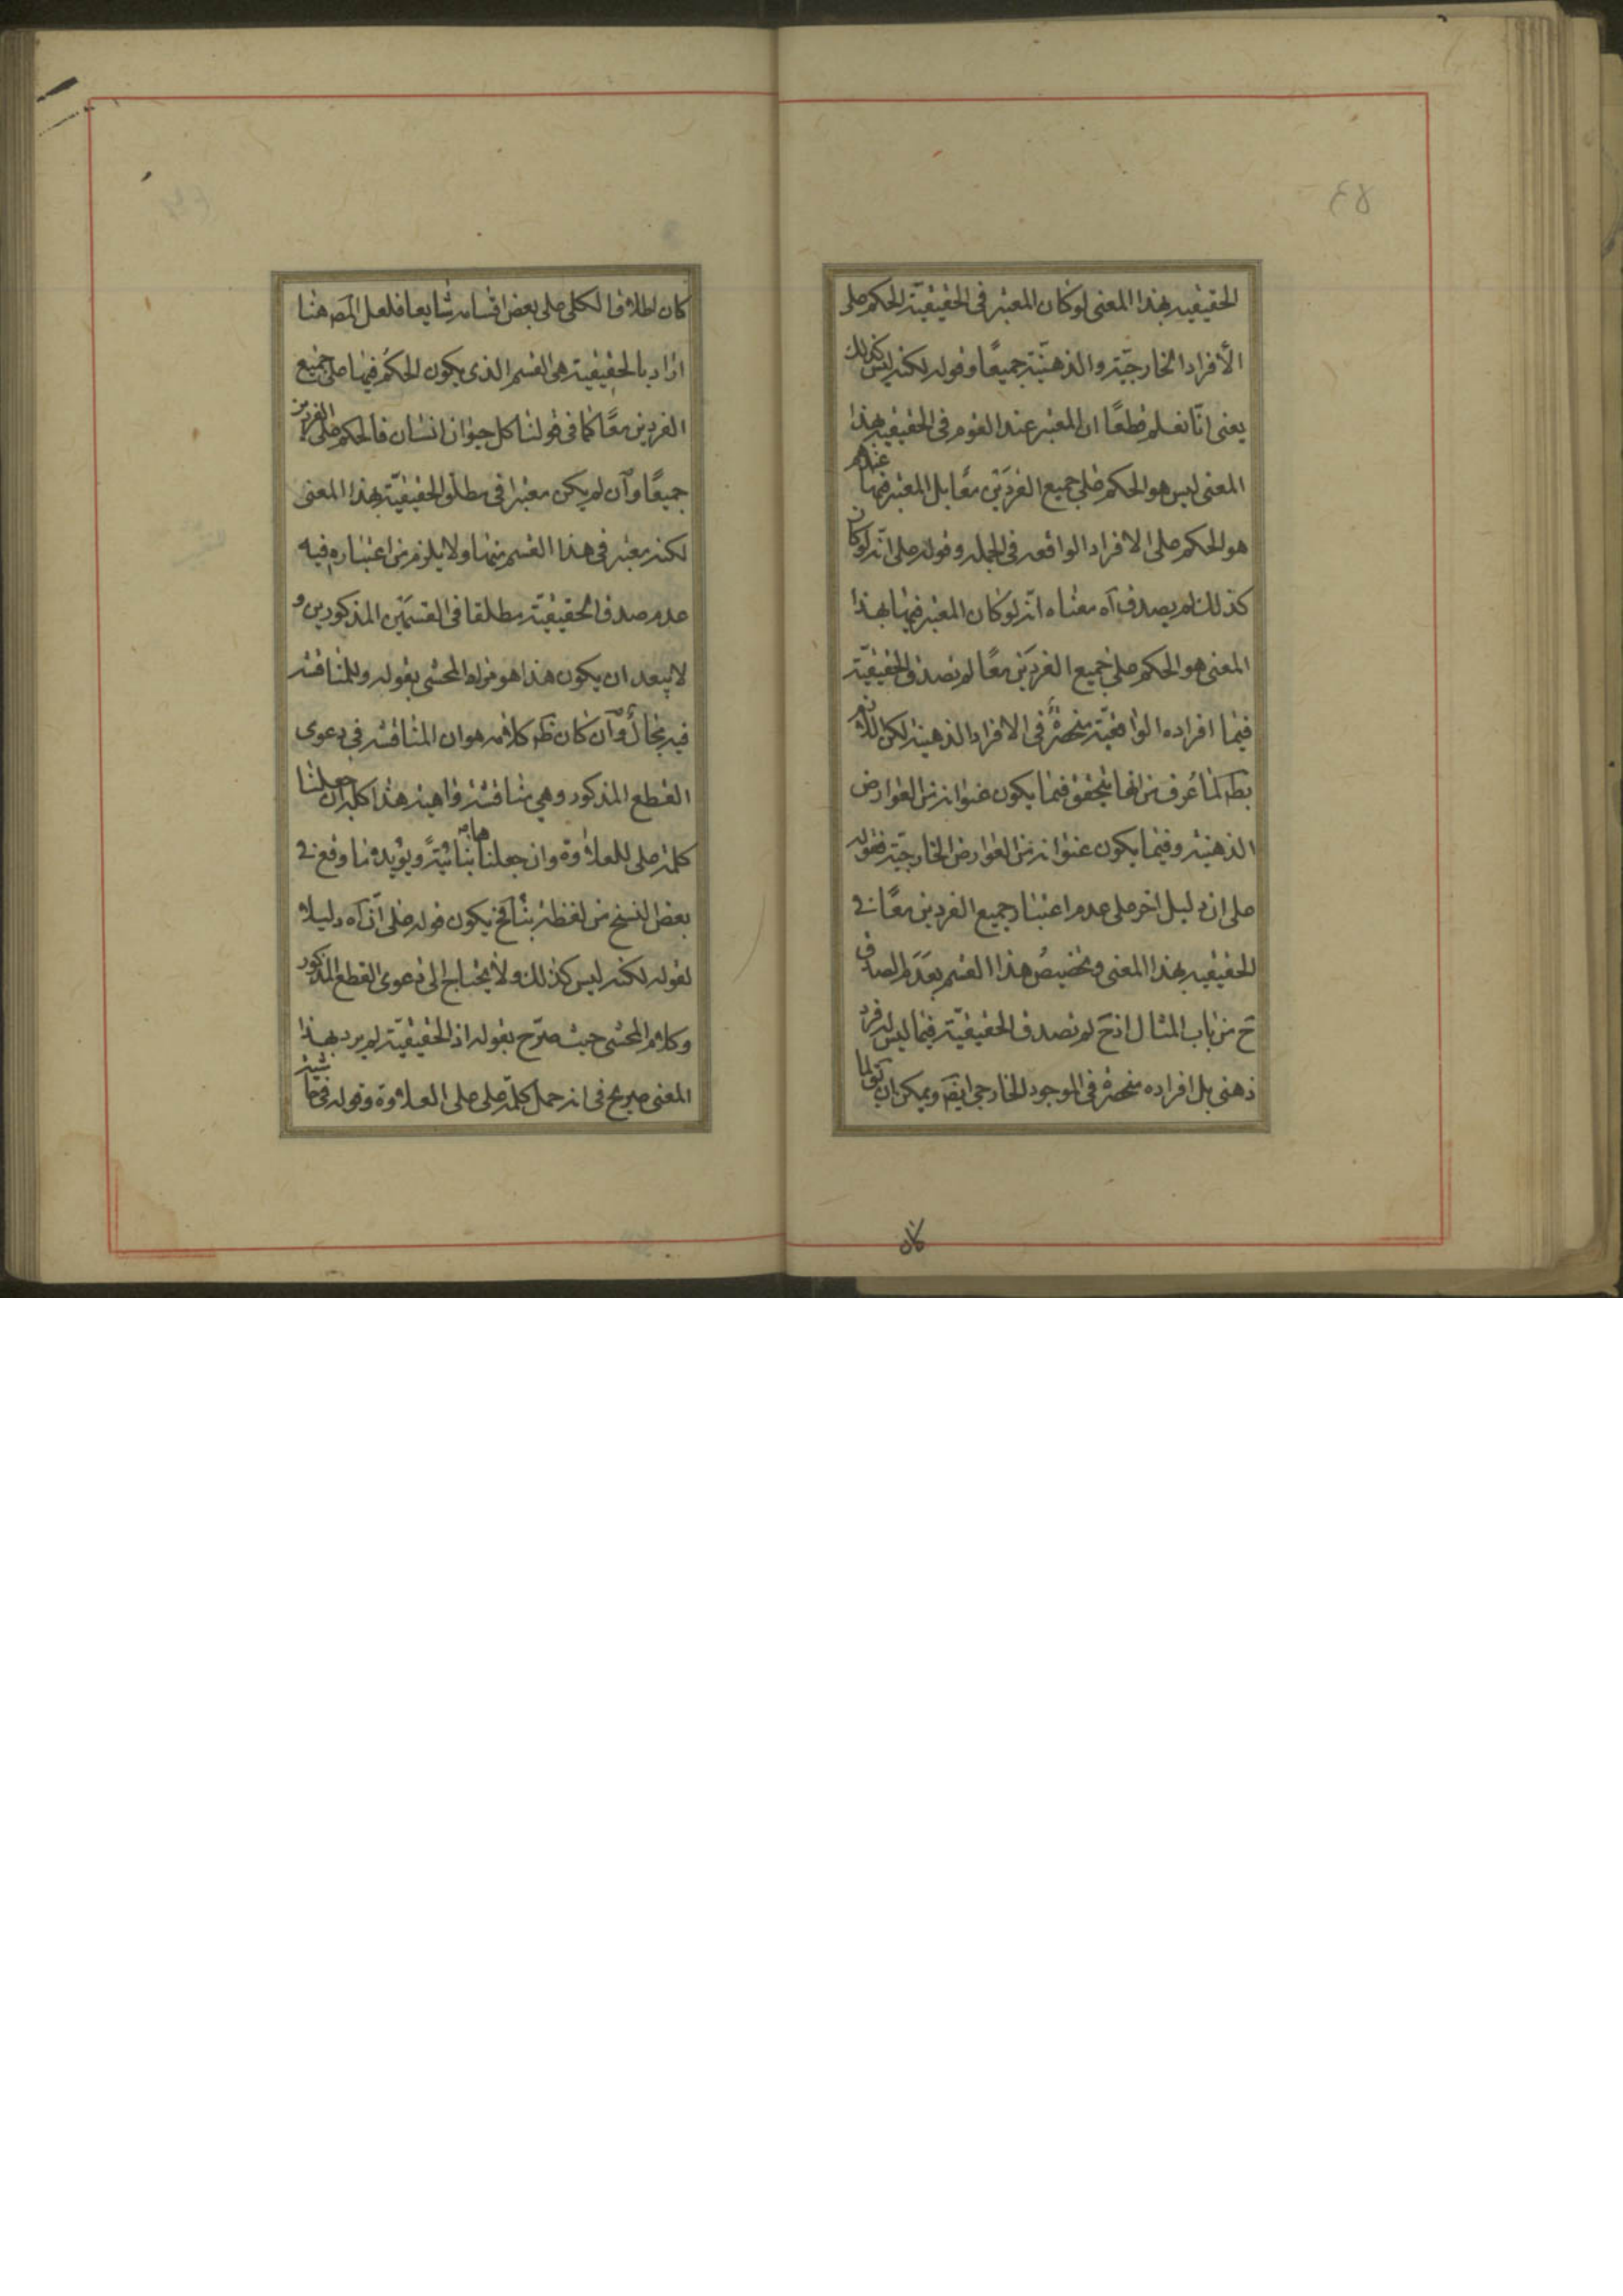 ٤٥
الحقيقيه بهذا المعنى لو كان المعتبر فى الحقيقيّة الحكم على
الأفراد الخارجيّة والذهنيّة جميعًا وقوله لكنه ليس كذلك
يعنى انّا نعلم قطعًا ان المعتبر عند القوم فى الحقيقيه بهذا
المعنى ليس هو الحكم على جميع الفردَين معًا بل المعتبر فيها عندهم
هو الحكم على الافراد الواقعه فى الجمله وقوله على انّه لو كان
كذلك لم يصدق آه معناه انّه لو كان المعتبر فيها بهذا
المعنى هو الحكم على جميع الفردَين معًا لم تصدق الحقيقيّة
فيما افراده الواقعيّة منحصرةٌ فى الافراد الذهنيه لكن اللازم
بط لما عُرف من انها يتحقق فيما يكون عنوانه من العوارض
الذهنيه وفيما يكون عنوانه من العوارض الخارجيّة فقوله
على ان دليل اخر على عدم اعتبار جميع الفردين معًا فى
الحقيقيه بهذا المعنى وتخصيصُ هذا القسم بعَدَم الصدق
ح من باب المثال اذ ح لم تصدق الحقيقيّة فيما ليس له فرد
ذهنى بل افراده منحصرة فى الموجود الخارجى ايضَ ويمكن ان يقال لما
كان
كان اطلاق الكلى على بعض اقسامه شايعا فلعل المصَ هنا
اراد بالحقيقيه هى القسم الذى يكون الحكم فيها على جميع
الفردين معًا كما فى قولنا كل حيوان انسان فالحكم على الفردين
جميعًا وآن لم يكن معتبرا فى مطلق الحقيقيّة بهذا المعنى
لكنه معتبر فى هذا القسم منها ولا يلزم من اعتباره فيه
عدم صدق الحقيقيّة مطلقا فى القسمَين المذكورين و
لا يبعد ان يكون هذا هو مراد المحشى بقوله وللمناقشه
فيه مجال وآن كان ظَ كلامه هو ان المناقشه فى دعوى
القطع المذكور وهى مناقشه واهيه هذا كله ان جعلنا
كلمة على للعلاوة وان جعلناها بنائيّةً ويؤيده ما وقع فى
بعض النسخ من لفظة بناً فح يكون قوله على آن آه دليلا
لقوله لكنه ليس كذلك ولا يحتاج الى دعوى القطع المذكور
وكلام المحشى حيث صرّح بقوله اذ الحقيقيّة لم يرد بهذا
المعنى صريح فى انه حمل كلمة على على العلاوة وقوله فى حاشيته